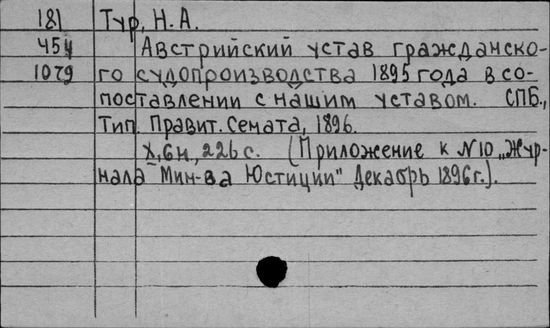 181 Тур, Н. А.
454 Австрийский устав гражданско-
1079 го судопроизводства 1895 года в со-
поставлении с нашим уставом. СПБ.,
Тип. Правит. Сената, 1896.
X, 6н., 226 с. (Приложение к N10 „Жур-
нала Мин-ва Юстиции" Декабрь 1896 г.).